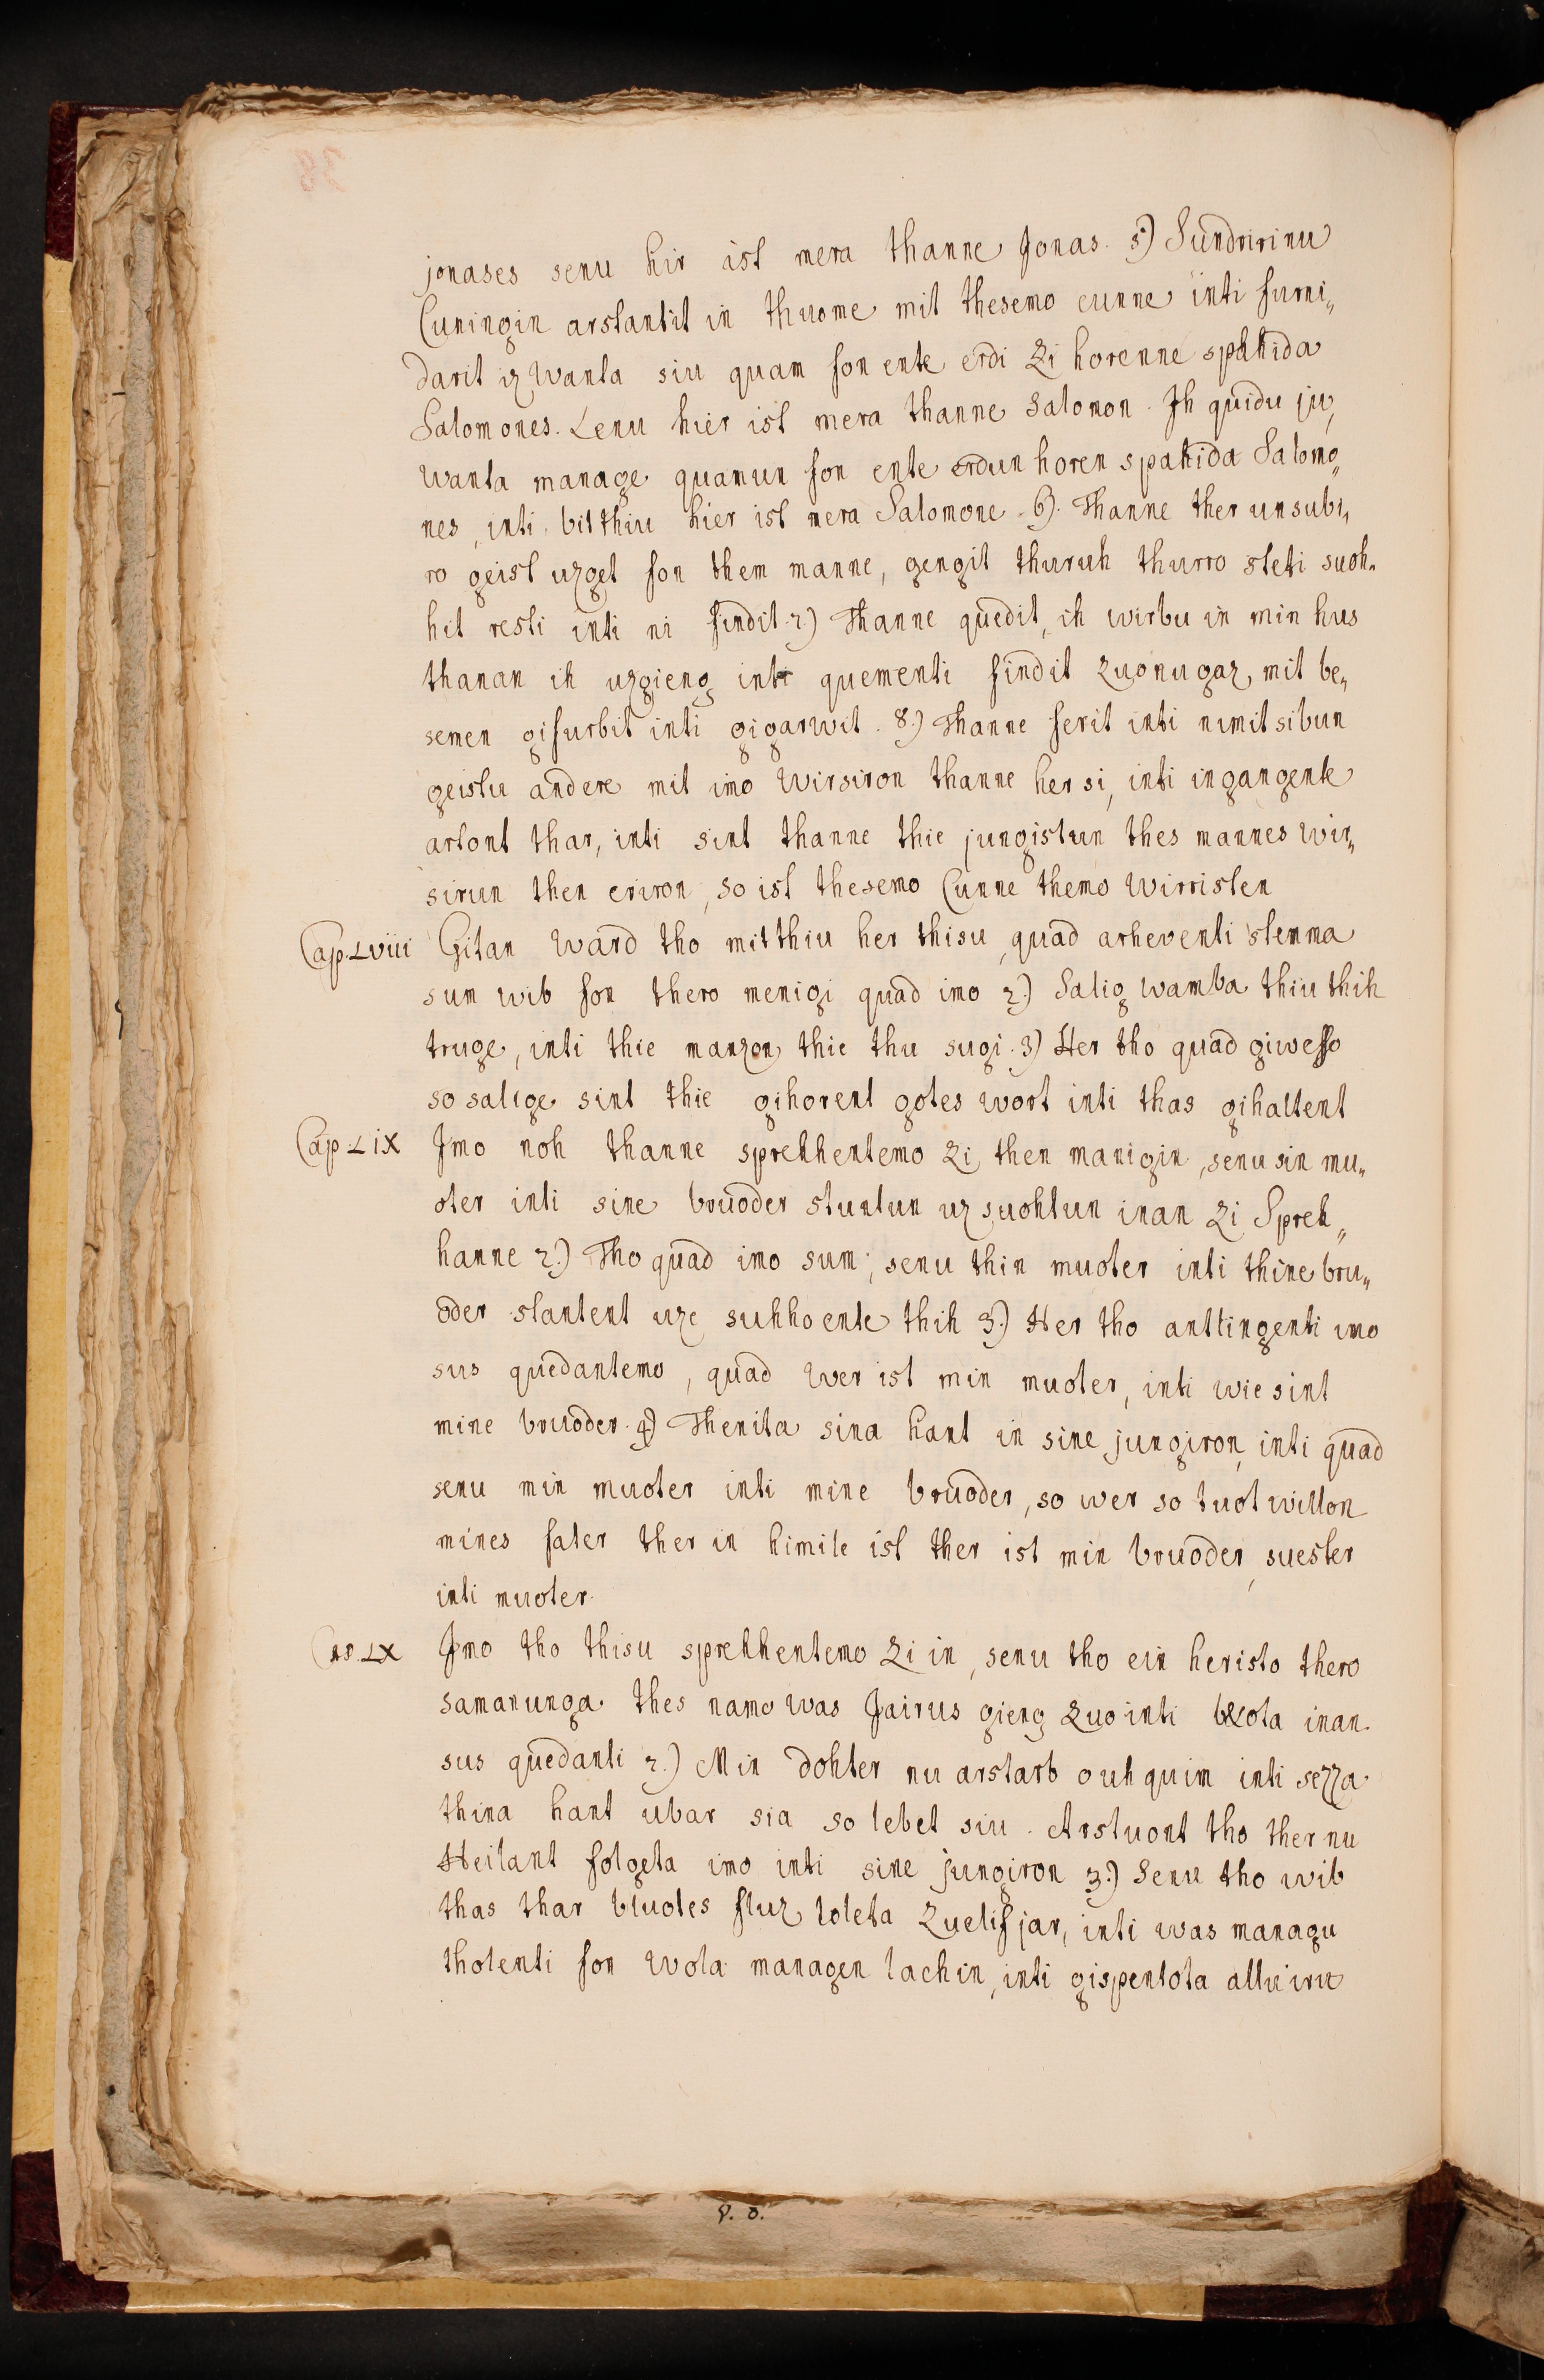 jonases senu hir ist mera thanne Jonas. 5) Sundririnu
Cuningin arstantit in thuome mit thesemo cunne inti furni„
darit iz wanta siu quam fon ente erdi Zi horenne spahida
Salomones. Lenu hier ist mera thanne Salomon. Ih quidu ju,
wanta manage quamun fon ente erdun horen spahida Salomo„
nes, inti bitthiu hier ist mera Salomone 6). Thanne ther unsubi„
ro geist uzget fon them manne, gengit thuruh thurro steti suoh„
hit resti inti ni findit. 7) Thanne quedit, ih wirbu in min hus
thanan ih uzgieng inti quementi findit Zuonugaz, mit be„
semen gifurbit inti gigarwit. 8.) Thanne ferit inti nimit sibun
geistu andere mit imo wirsiron thanne her si, inti ingangente
artont thar, inti sint thanne thie jungistun thes mannes wir„
sirun then eriron, so ist thesemo Cunne themo wirristen
Cap. Lviii Gitan ward tho mitthiu her thisu, quad arheventi stemma
sum wib fon thero menigi quad imo 2.) Salig wamba thiu thih
truge, inti thie manzon thie thu sugi. 3) Her tho quad giwesso
so salige sint thie gihorent gotes wort inti thas gihaltent
Cap. Lix Imo noh thanne sprehhentemo Zi then manigin, senu sin mu„
oter inti sine bruoder stuntun uz suohtun inan Zi Spreh„
hanne 2.) Tho quad imo sum; senu thin muoter inti thine bru„
oder stantent uze suhhoente thih 3.) Her tho anttingenti imo
sus quedantemo, quad wer ist min muoter, inti wie sint
mine bruoder. 4) Thenita sina hant in sine jungiron, inti quad
senu min muoter inti mine bruoder, so wer so tuot willon
mines fater ther in himile ist ther ist min bruoder, suester
inti muoter.
Cap. Lx Imo tho thisu sprehhentemo Zi in, senu tho ein heristo thero
samanunga thes namo was Jairus gieng Zuo inti betota inan.
sus quedanti 2.) Min dohter nu arstarb ouh quim inti sezza
thina hant ubar sia so lebet siu. Arstuont tho ther nu
Heilant folgeta imo inti sine jungiron 3.) Senu tho wib
thas thar bluotes fluz toleta Zuelif jar, inti was managu
tholenti fon wola managen lachin, inti gispentota allu iru